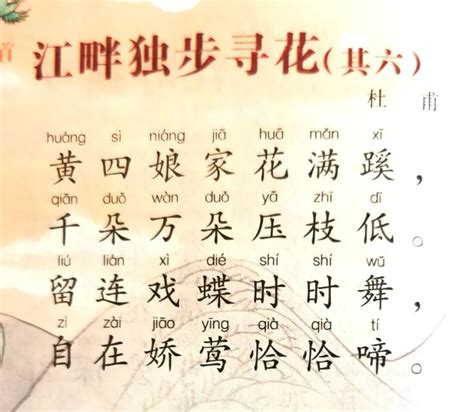 首
江畔独步寻花(其六)
杜 甫
huáng sì niáng jiā huā mǎn xī
黄四娘家花满蹊，
qiān duǒ wàn duǒ yā zhī dī
千朵万朵压枝低。
liú lián xì dié shí shí wǔ
留连戏蝶时时舞，
zì zài jiāo yīng qià qià tí
自在娇莺恰恰啼。